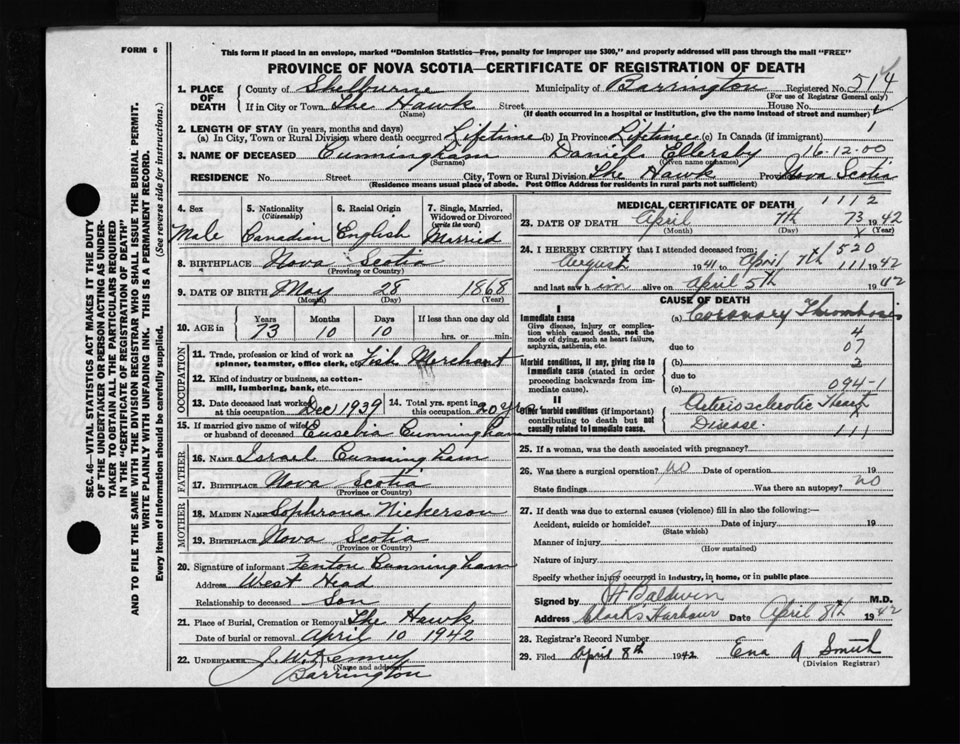 FORM 6
This form if placed in an envelope, marked "Dominion Statistics—Free, penalty for improper use $300," and properly addressed will pass through the mail "FREE"
PROVINCE OF NOVA SCOTIA—CERTIFICATE OF REGISTRATION OF DEATH
1. PLACE OF DEATH
County of Shelburne Municipality of Barrington Registered No. 514
(For use of Registrar General only)
If in City or Town The Hawk Street House No.
(Name) (If death occurred in a hospital or institution, give the name instead of street and number)
1
2. LENGTH OF STAY (in years, months and days)
(a) In City, Town or Rural Division where death occurred Lifetime (b) In Province Lifetime (c) In Canada (if immigrant)
3. NAME OF DECEASED Cunningham Daniel Ellersby 16-12.00
(Surname) (Given name or names)
RESIDENCE No. Street City, Town or Rural Division The Hawk Province Nova Scotia
(Residence means usual place of abode. Post Office Address for residents in rural parts not sufficient)
4. Sex
Male
5. Nationality
(Citizenship)
Canadian
6. Racial Origin
English
7. Single, Married, Widowed or Divorced
(write the word)
Married
8. BIRTHPLACE Nova Scotia
(Province or Country)
9. DATE OF BIRTH May 28 1868
(Month) (Day) (Year)
10. AGE in
Years Months Days If less than one day old
73 10 10 hrs. or min.
OCCUPATION
11. Trade, profession or kind of work as
spinner, teamster, office clerk, etc. Fish Merchant
12. Kind of industry or business, as cotton-
mill, lumbering, bank, etc.
13. Date deceased last worked
at this occupation Dec 1939
14. Total yrs. spent in
this occupation 20 yrs
15. If married give name of wife
or husband of deceased Eusebia Cunningham
FATHER
16. NAME Israel Cunningham
17. BIRTHPLACE Nova Scotia
(Province or Country)
MOTHER
18. MAIDEN NAME Sophrona Nickerson
19. BIRTHPLACE Nova Scotia
(Province or Country)
20. Signature of informant Fenton Cunningham
Address West Head
Relationship to deceased Son
21. Place of Burial, Cremation or Removal The Hawk
Date of burial or removal April 10 1942
22. UNDERTAKER J. W. Kenney
(Name and address)
Barrington
MEDICAL CERTIFICATE OF DEATH 1112
23. DATE OF DEATH April 7th 73 1942
(Month) (Day) X (Year)
24. I HEREBY CERTIFY that I attended deceased from: 520
August 1941 to April 7th 111 1942
and last saw him alive on April 5th 1942
CAUSE OF DEATH
I
Immediate cause
Give disease, injury or complication which caused death, not the mode of dying, such as heart failure, asphyxia, asthenia, etc.
(a) Coronary Thrombosis
4
due to 07
Morbid conditions, if any, giving rise to immediate cause (stated in order proceeding backwards from immediate cause).
(b) 2
due to
(c) 094-1
II
Other morbid conditions (if important) contributing to death but not causally related to immediate cause.
Arteriosclerotic Heart
Disease. 111
25. If a woman, was the death associated with pregnancy?
26. Was there a surgical operation? NO Date of operation 19
State findings Was there an autopsy? NO
27. If death was due to external causes (violence) fill in also the following:—
Accident, suicide or homicide? Date of injury 19
(State which)
Manner of injury
(How sustained)
Nature of injury
Specify whether injury occurred in industry, in home, or in public place
Signed by H Baldwin M.D.
Address Clark's Harbour Date April 8th 1942
28. Registrar's Record Number
29. Filed April 8th 1942 Ena A Smith
(Division Registrar)
SEC. 46—VITAL STATISTICS ACT MAKES IT THE DUTY
OF THE UNDERTAKER OR PERSON ACTING AS UNDER-
TAKER TO OBTAIN ALL THE PARTICULARS REQUIRED
IN THE "CERTIFICATE OF REGISTRATION OF DEATH"
AND TO FILE THE SAME WITH THE DIVISION REGISTRAR WHO SHALL ISSUE THE BURIAL PERMIT.
WRITE PLAINLY WITH UNFADING INK. THIS IS A PERMANENT RECORD.
Every item of information should be carefully supplied. (See reverse side for instructions.)